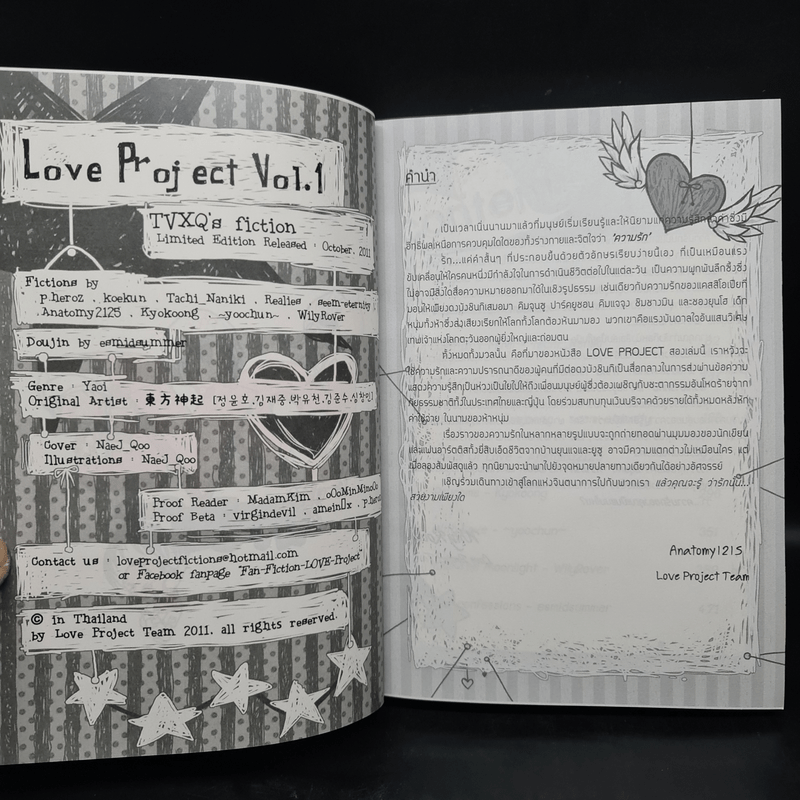 Love Project Vol.1
TVXQ's fiction
Limited Edition Released : October, 2011
Fictions by
p.heroz . koekun . Tachi_Naniki . Realies . seem-eternity .
Anatomy1215 . Kyokoong . ~yoochun~ . WilyRover
Doujin by esmidsummer
Genre : Yaoi
Original Artist : 東方神起 [정윤호.김재중.박유천.김준수.심창민]
Cover : NaeJ_Qoo
Illustrations : NaeJ_Qoo
Proof Reader : MadamKim . oOoMinMinoOo
Proof Beta : virgindevil . amein0x . p.heroz
Contact us : loveprojectfictions@hotmail.com
or Facebook fanpage "Fan-Fiction-LOVE-Project"
© in Thailand
by Love Project Team 2011. all rights reserved.
คำนำ
เป็นเวลาเนิ่นนานมาแล้วที่มนุษย์เริ่มเรียนรู้และให้นิยามแก่ความรู้สึกล้ำค่าซึ่งมี
อิทธิพลเหนือการควบคุมใดใดของทั้งร่างกายและจิตใจว่า 'ความรัก'
รัก...แค่คำสั้นๆ ที่ประกอบขึ้นด้วยตัวอักษรเรียบง่ายนี้เอง ที่เป็นเหมือนแรง
ขับเคลื่อนให้ใครคนหนึ่งมีกำลังใจในการดำเนินชีวิตต่อไปในแต่ละวัน เป็นความผูกพันลึกซึ้งซึ่ง
ไม่อาจมีสิ่งใดสื่อความหมายออกมาได้ในเชิงรูปธรรม เช่นเดียวกับความรักของแคสสิโอเปียที่
มอบให้เพียงดงบังชินกิเสมอมา คิมจุนซู ปาร์คยูชอน คิมแจจุง ชิมชางมิน และชองยุนโฮ เด็ก
หนุ่มทั้งห้าซึ่งส่งเสียงเรียกให้โลกทั้งโลกต้องหันมามอง พวกเขาคือแรงบันดาลใจอันแสนวิเศษ
เทพเจ้าแห่งโลกตะวันออกผู้ยิ่งใหญ่และถ่อมตน
ทั้งหมดทั้งมวลนั้น คือที่มาของหนังสือ LOVE PROJECT สองเล่มนี้ เราหวังจะ
ใช้ความรักและความปรารถนาดีของผู้คนที่มีต่อดงบังชินกิเป็นสื่อกลางในการส่งผ่านข้อความ
แสดงความรู้สึกเป็นห่วงเป็นใยไปให้ถึงเพื่อนมนุษย์ผู้ซึ่งต้องเผชิญกับชะตากรรมอันโหดร้ายจาก
ภัยธรรมชาติทั้งในประเทศไทยและญี่ปุ่น โดยร่วมสมทบทุนเงินบริจาคด้วยรายได้ทั้งหมดหลังหัก
ค่าใช้จ่าย ในนามของห้าหนุ่ม
เรื่องราวของความรักในหลากหลายรูปแบบจะถูกถ่ายทอดผ่านมุมมองของนักเขียน
และแฟนอาร์ตติสทั้งยี่สิบเอ็ดชีวิตจากบ้านยุนแจและยูซู อาจมีความแตกต่างไม่เหมือนใคร แต่
เมื่อลองสัมผัสดูแล้ว ทุกนิยามจะนำพาไปยังจุดหมายปลายทางเดียวกันได้อย่างอัศจรรย์
เชิญร่วมเดินทางเข้าสู่โลกแห่งจินตนาการไปกับพวกเรา แล้วคุณจะรู้ ว่ารักนั้น...
สวยงามเพียงใด
Anatomy1215
Love Project Team